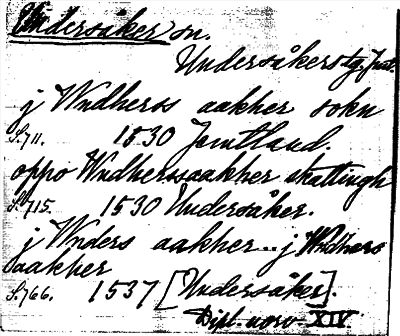 Undersåker sn.
Undersåkers tg, Jmtl.
j Wndherss aakher sokn
S. 711. 1530 Jemtland.
oppo Wndherssaakher skattingh
S. 715. 1530 Undersåker.
j Wnders aakher .. j Wndhers
saakher
S. 766. 1537 [Undersåker]
Dipl. norv. XIV